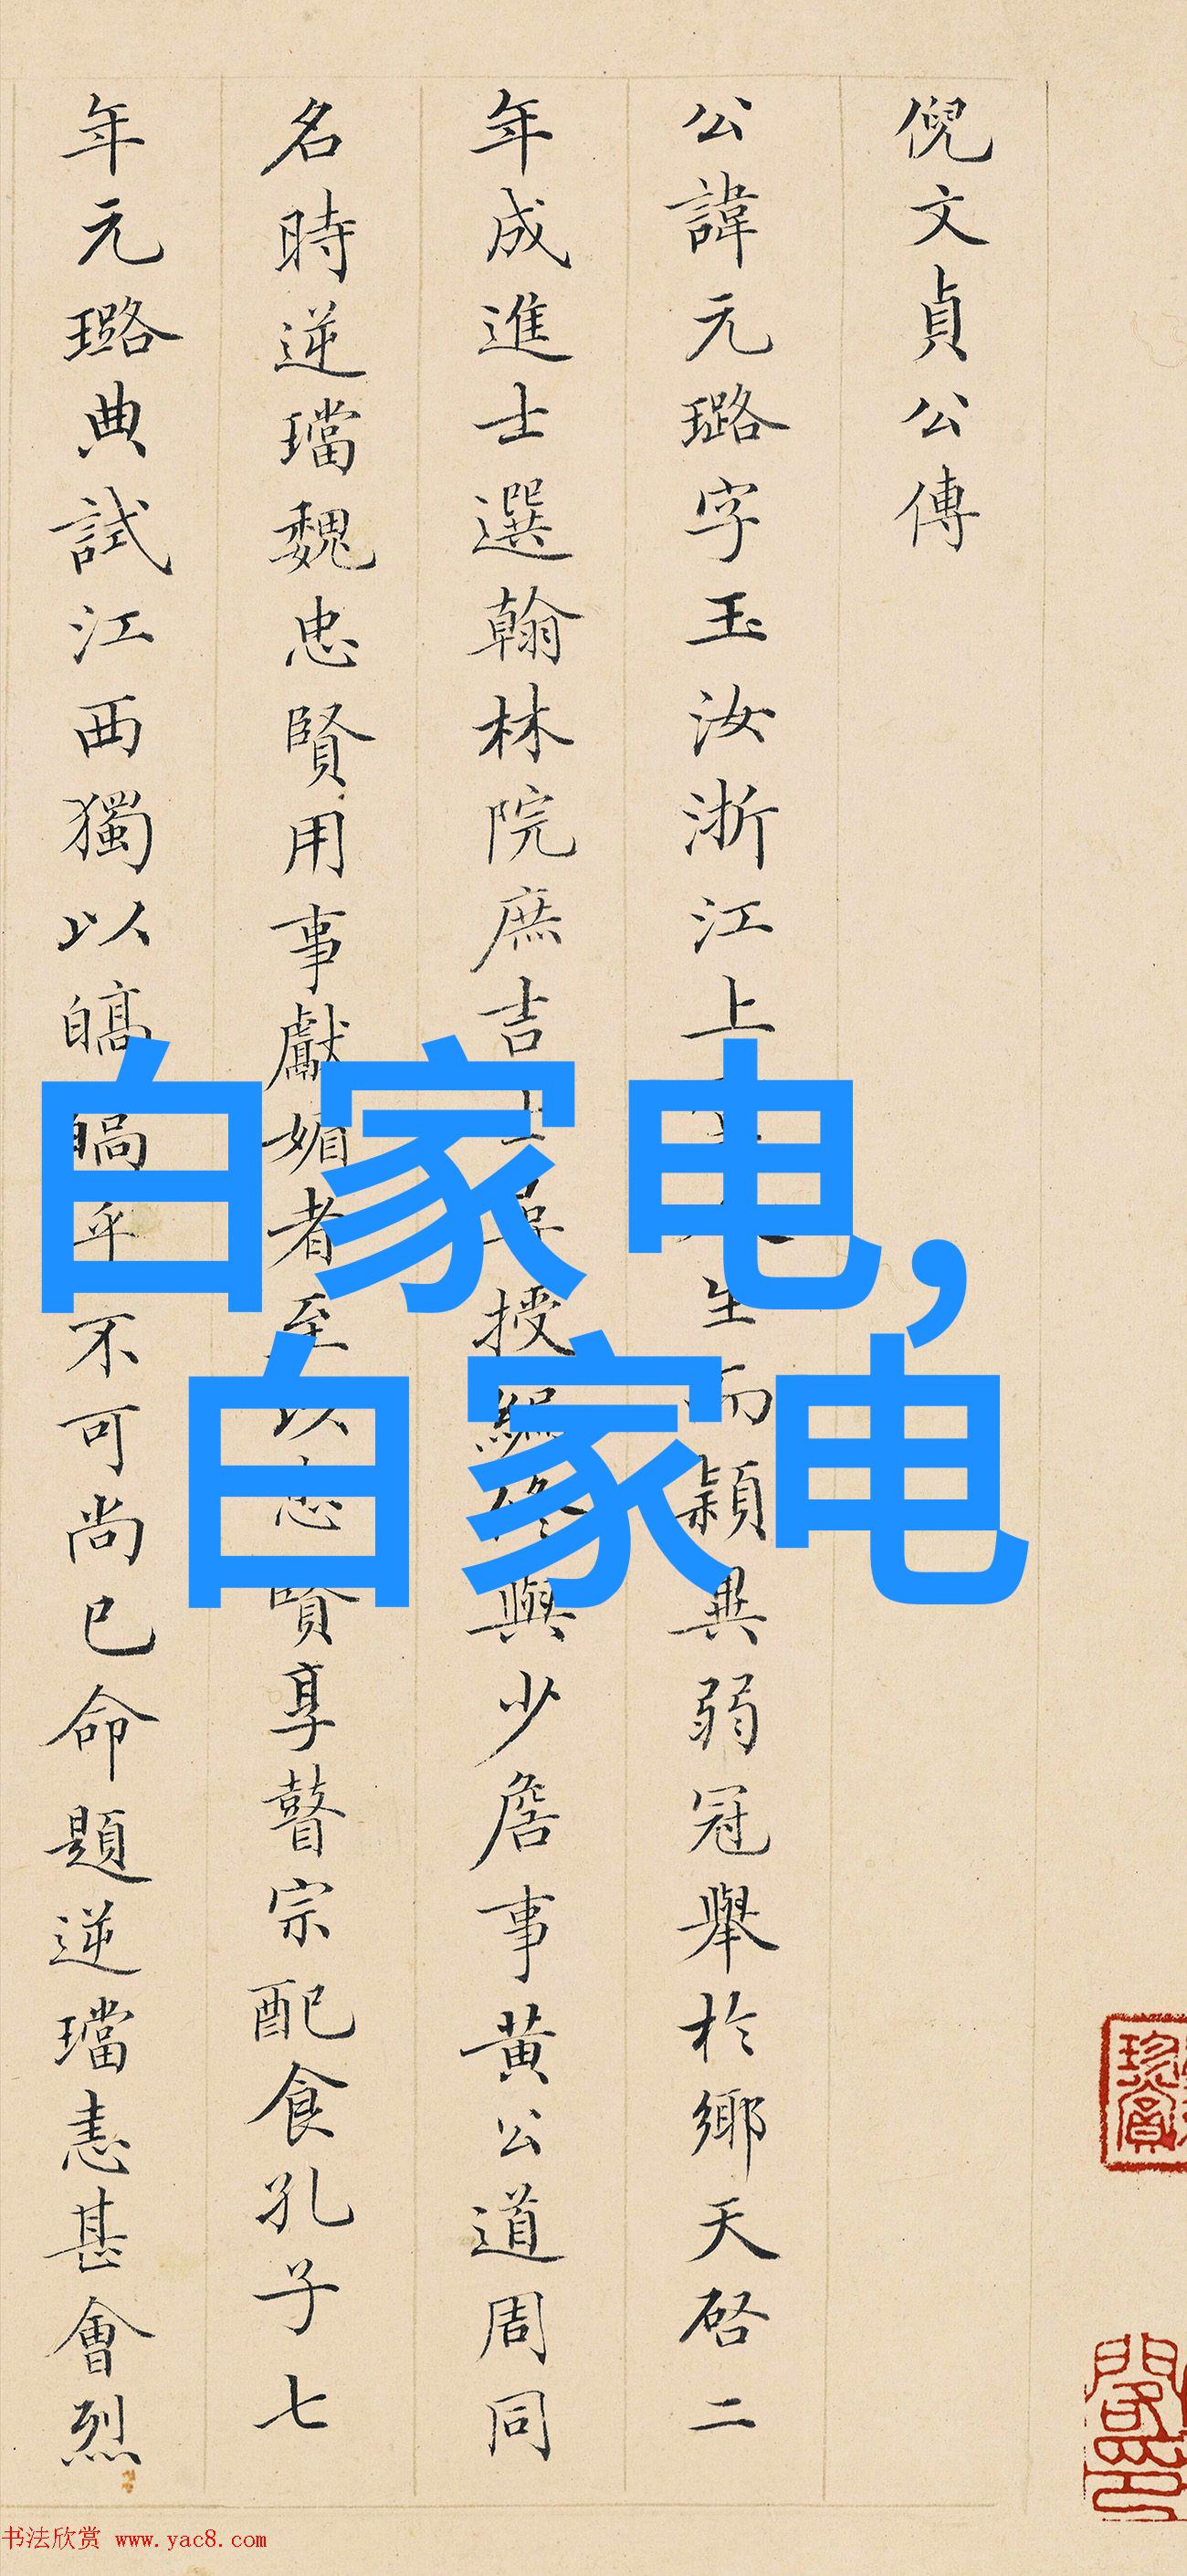 倪文貞公傳
公諱元璐字玉汝浙江上生而穎異弱冠舉於鄉天啓二
年成進士選翰林院庶吉士授編修與少詹事黃公道周同
名時逆璫魏忠賢用事獻媚者至以忠賢享瞽宗配食孔子七
年元璐典試江西獨以皜皜乎不可尚已命題逆璫恚甚會烈
白家电,
白家电
书法欣赏 www.yac8.com